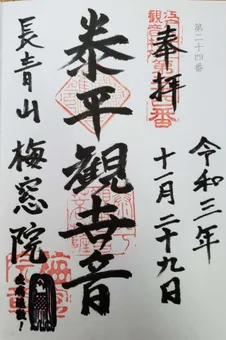 第二十四番
奉拝
令和三年
十一月二十九日
泰平観世音
長青山
梅窓院